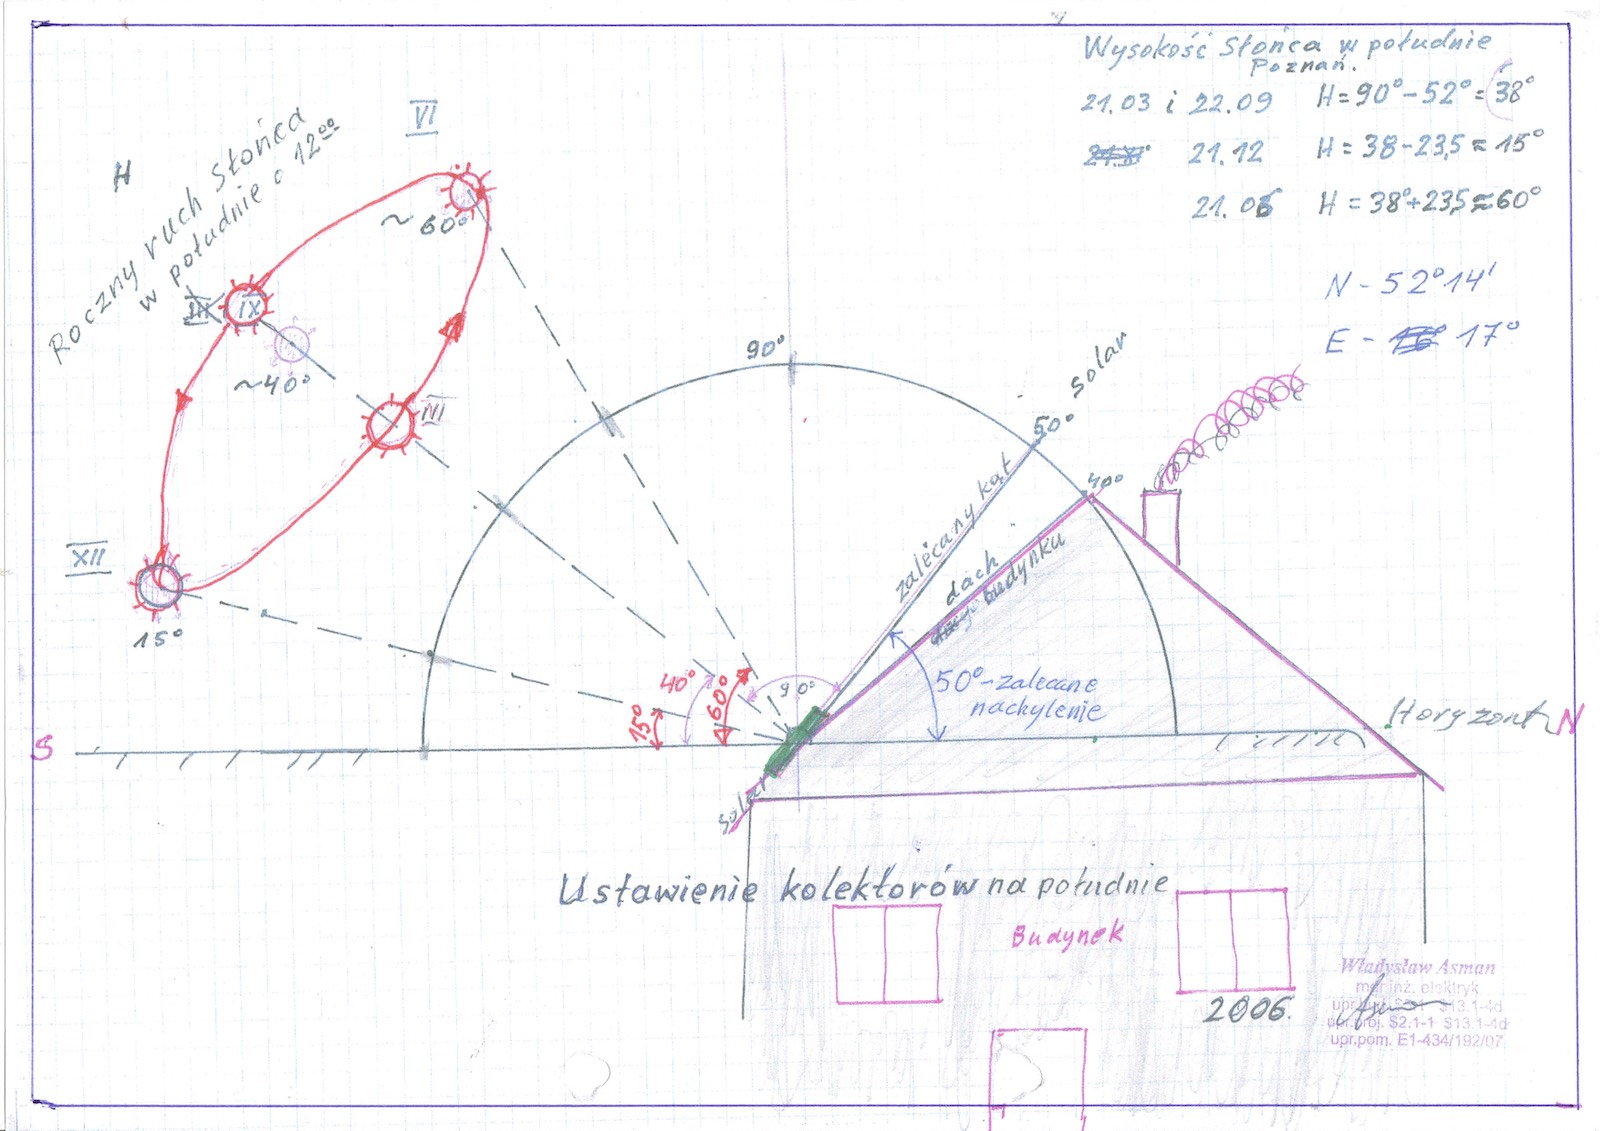 Wysokość Słońca w południe
Poznań.
21.03 i 22.09 H=90°-52°=38°
21.12 H=38-23,5≈15°
21.06 H=38°+23,5≈60°
N-52°14'
E- 17°
H
Roczny ruch Słońca
w południe o 12⁰⁰
VI
~60°
III
IX
~40°
III
XII
15°
90°
50° solar
40°
zalecany kąt
dach
budynku
15°
40°
60°
90°
50°-zalecane
nachylenie
S
Horyzont N
solar
Ustawienie kolektorów na południe
Budynek
2006.
Władysław Asman
mgr inż. elektryk
upr.proj. S2.1-1 S13.1-4d
upr.pom. E1-434/192/07